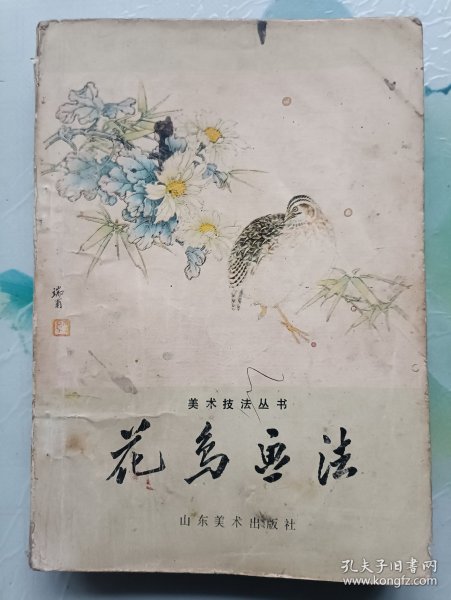 瑞甫
美术技法丛书
花鸟画法
山东美术出版社
孔夫子旧书网
www.kongfz.com